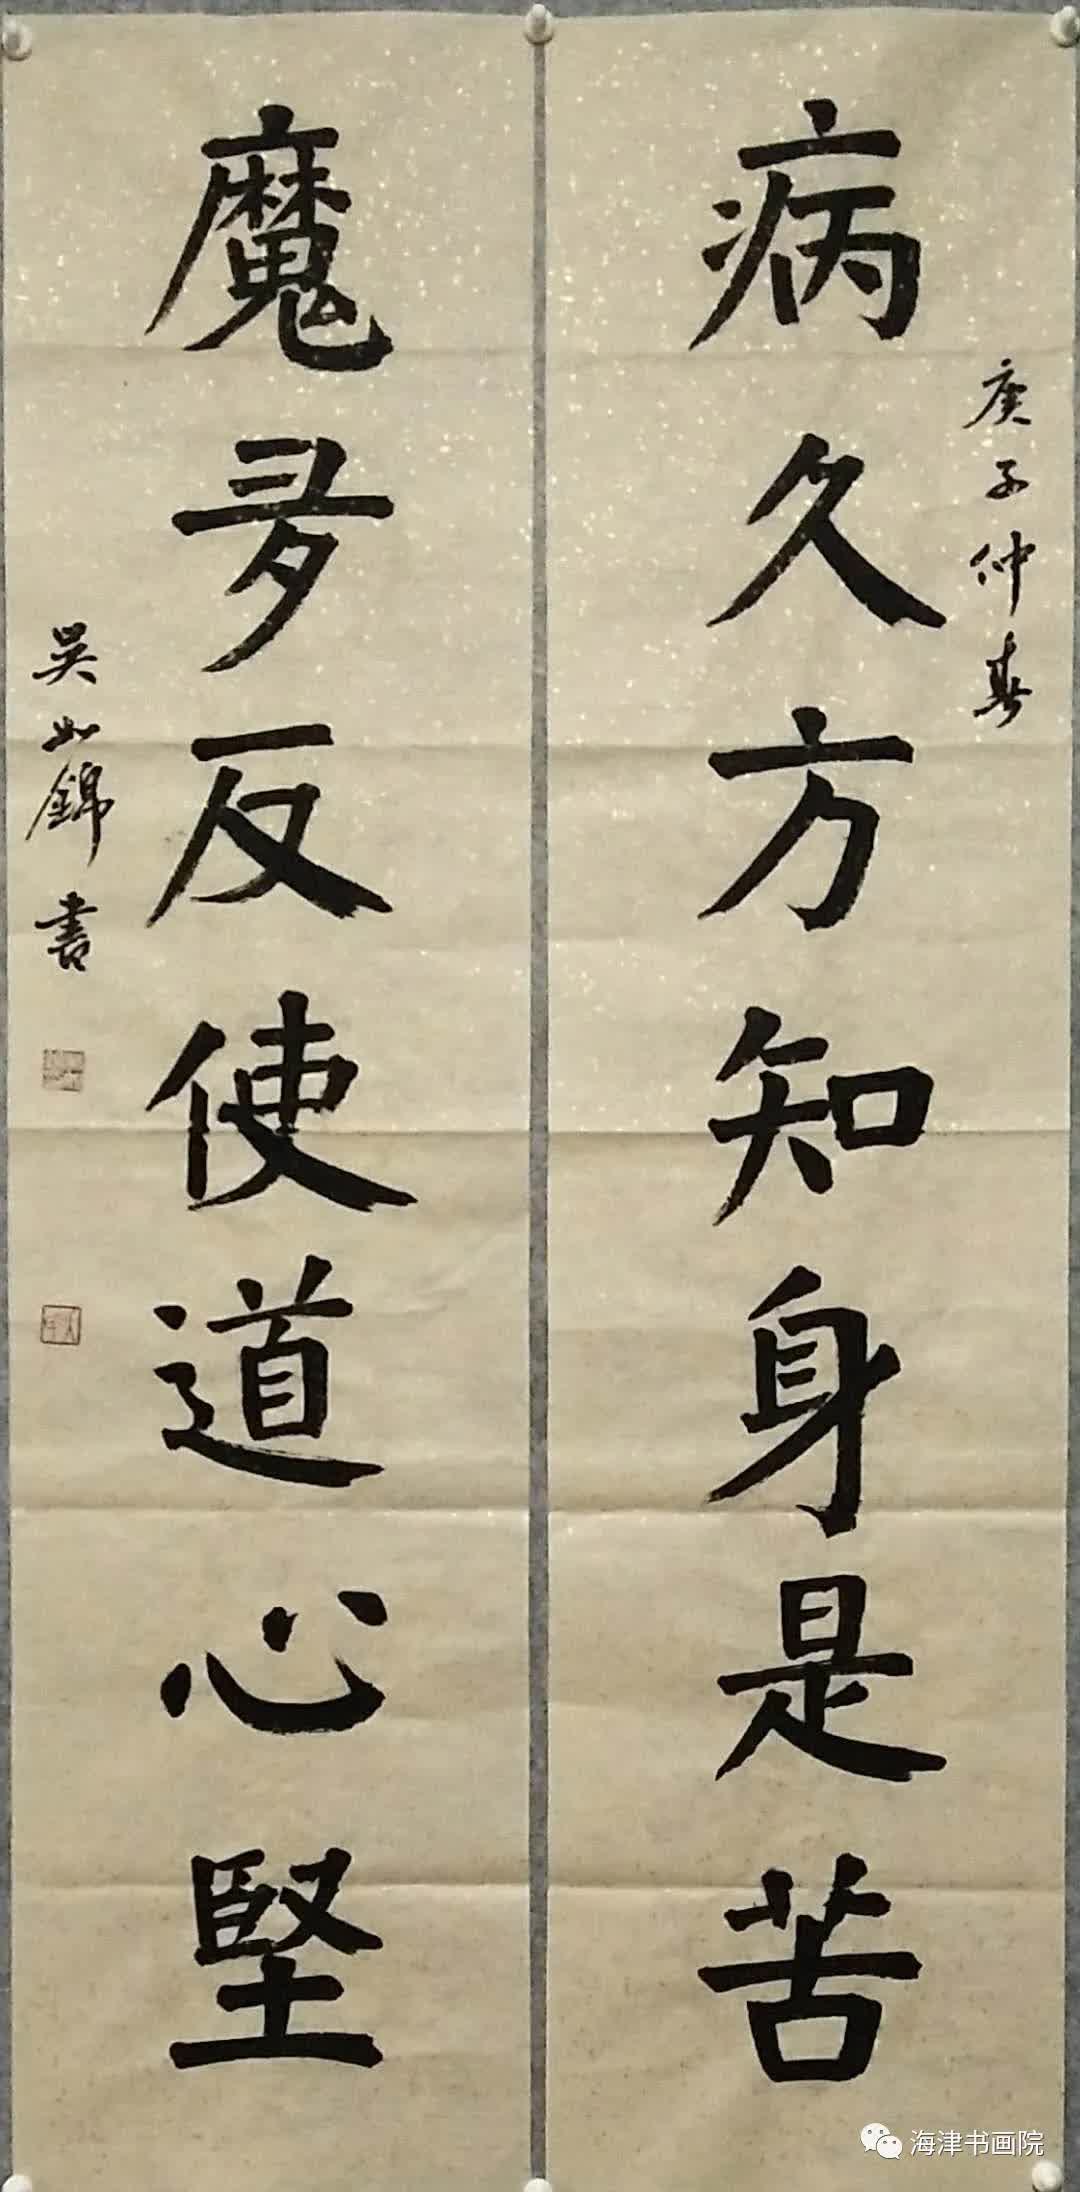 庚子仲春
病久方知身是苦
魔多反使道心堅
吳如錦書
海津书画院